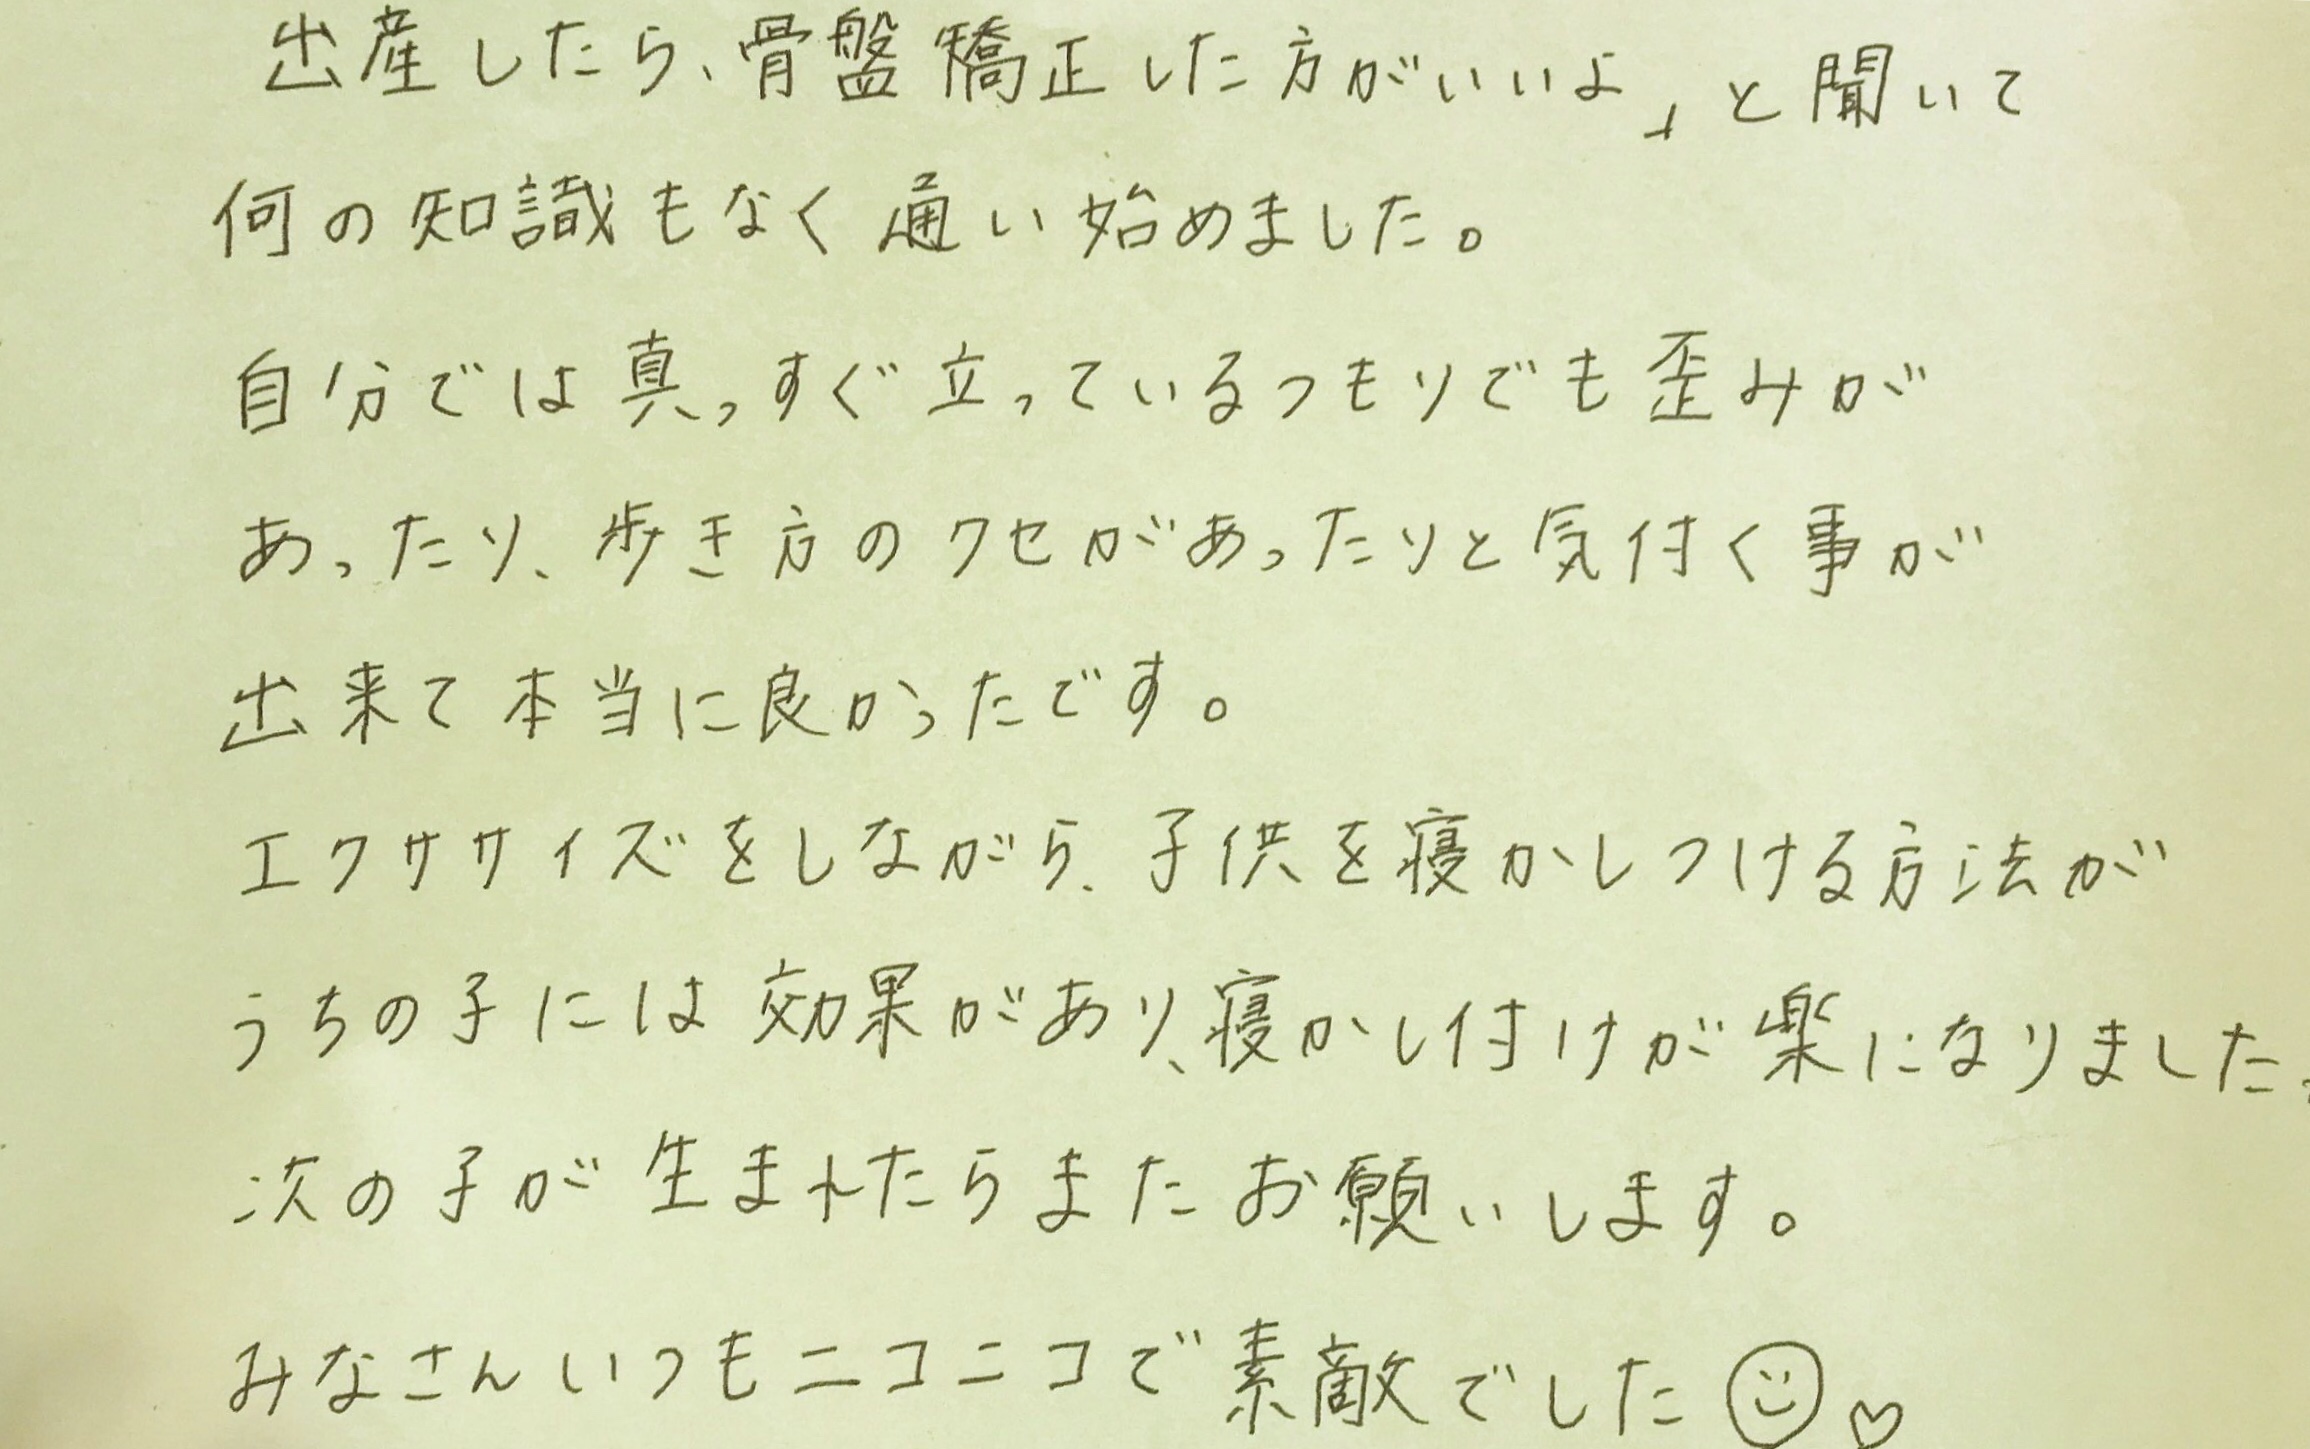 出産したら、骨盤矯正した方がいいよ」と聞いて
何の知識もなく通い始めました。
自分では真っすぐ立っているつもりでも歪みが
あったり、歩き方のクセがあったりと気付く事が
出来て本当に良かったです。
エクササイズをしながら、子供を寝かしつける方法が
うちの子には効果があり、寝かし付けが楽になりました。
次の子が生まれたらまたお願いします。
みなさんいつもニコニコで素敵でした☺♡